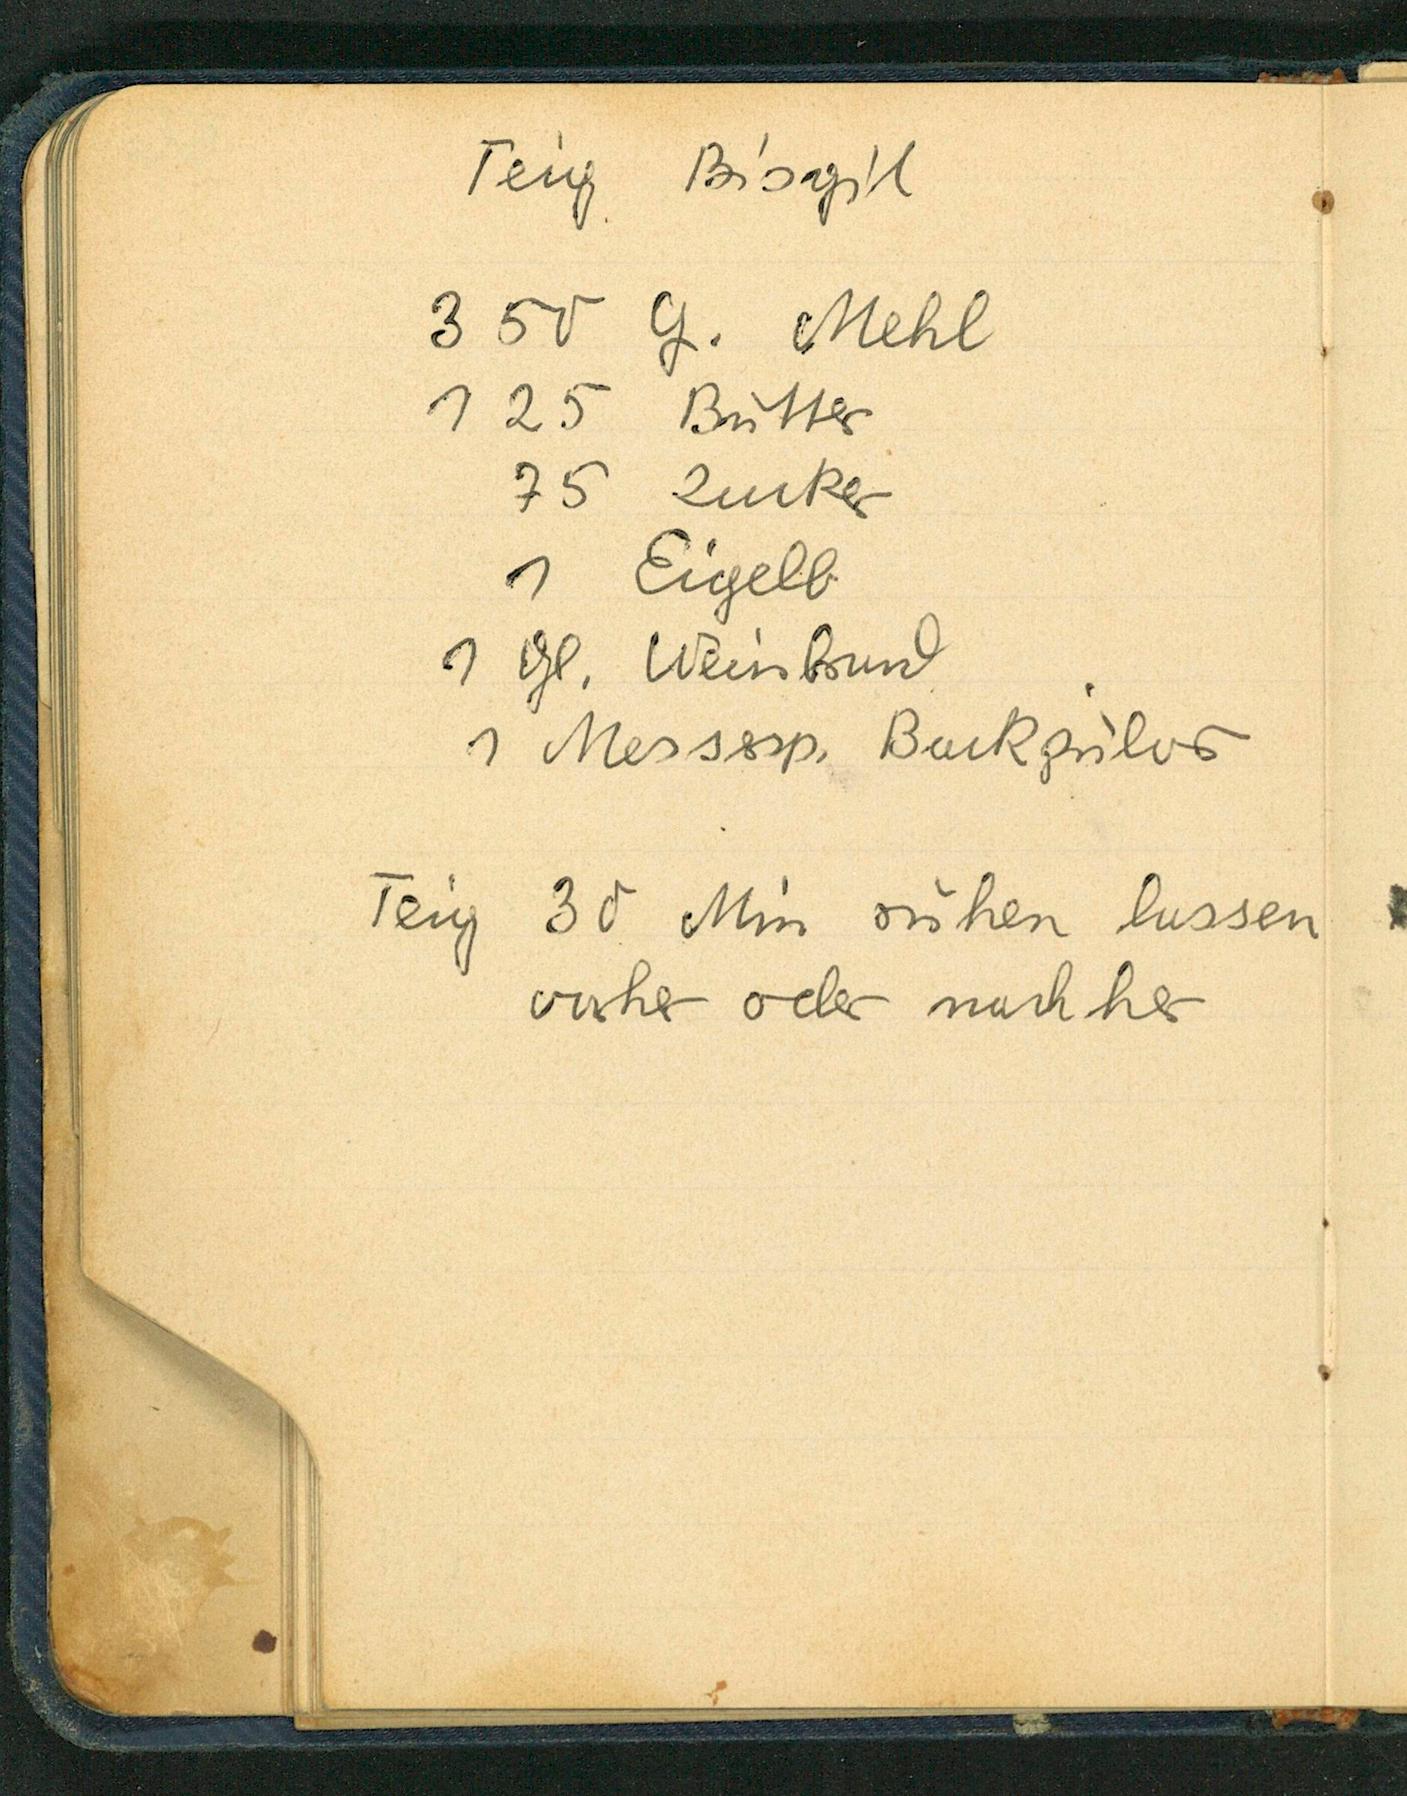 Teig Birgit
350 G. Mehl
125 Butter
75 Zucker
1 Eigelb
1 Gl. Weinbrand
1 Messersp. Backpulver
Teig 30 Min ruhen lassen
vorher oder nachher